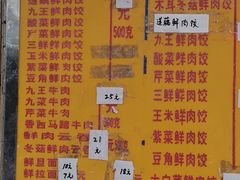 莲藕鲜肉饺
九王鲜肉饺
酸菜鲜肉饺
芹菜鲜肉饺
三王鲜肉饺
玉米鲜肉饺
紫菜鲜肉饺
豆角鲜肉饺
九王牛肉
九菜牛肉
芹菜牛肉
香茜马蹄牛肉
鲜肉云吞
冬菇鲜肉云
元
500克
25元
21元
10元
7元
18元
木耳冬菇鲜肉饺
莲藕鲜肉饺
鲜肉饺
九菜鲜肉饺
酸菜鲜肉饺
芹菜鲜肉饺
三王鲜肉饺
玉米鲜肉饺
紫菜鲜肉饺
豆角鲜肉饺